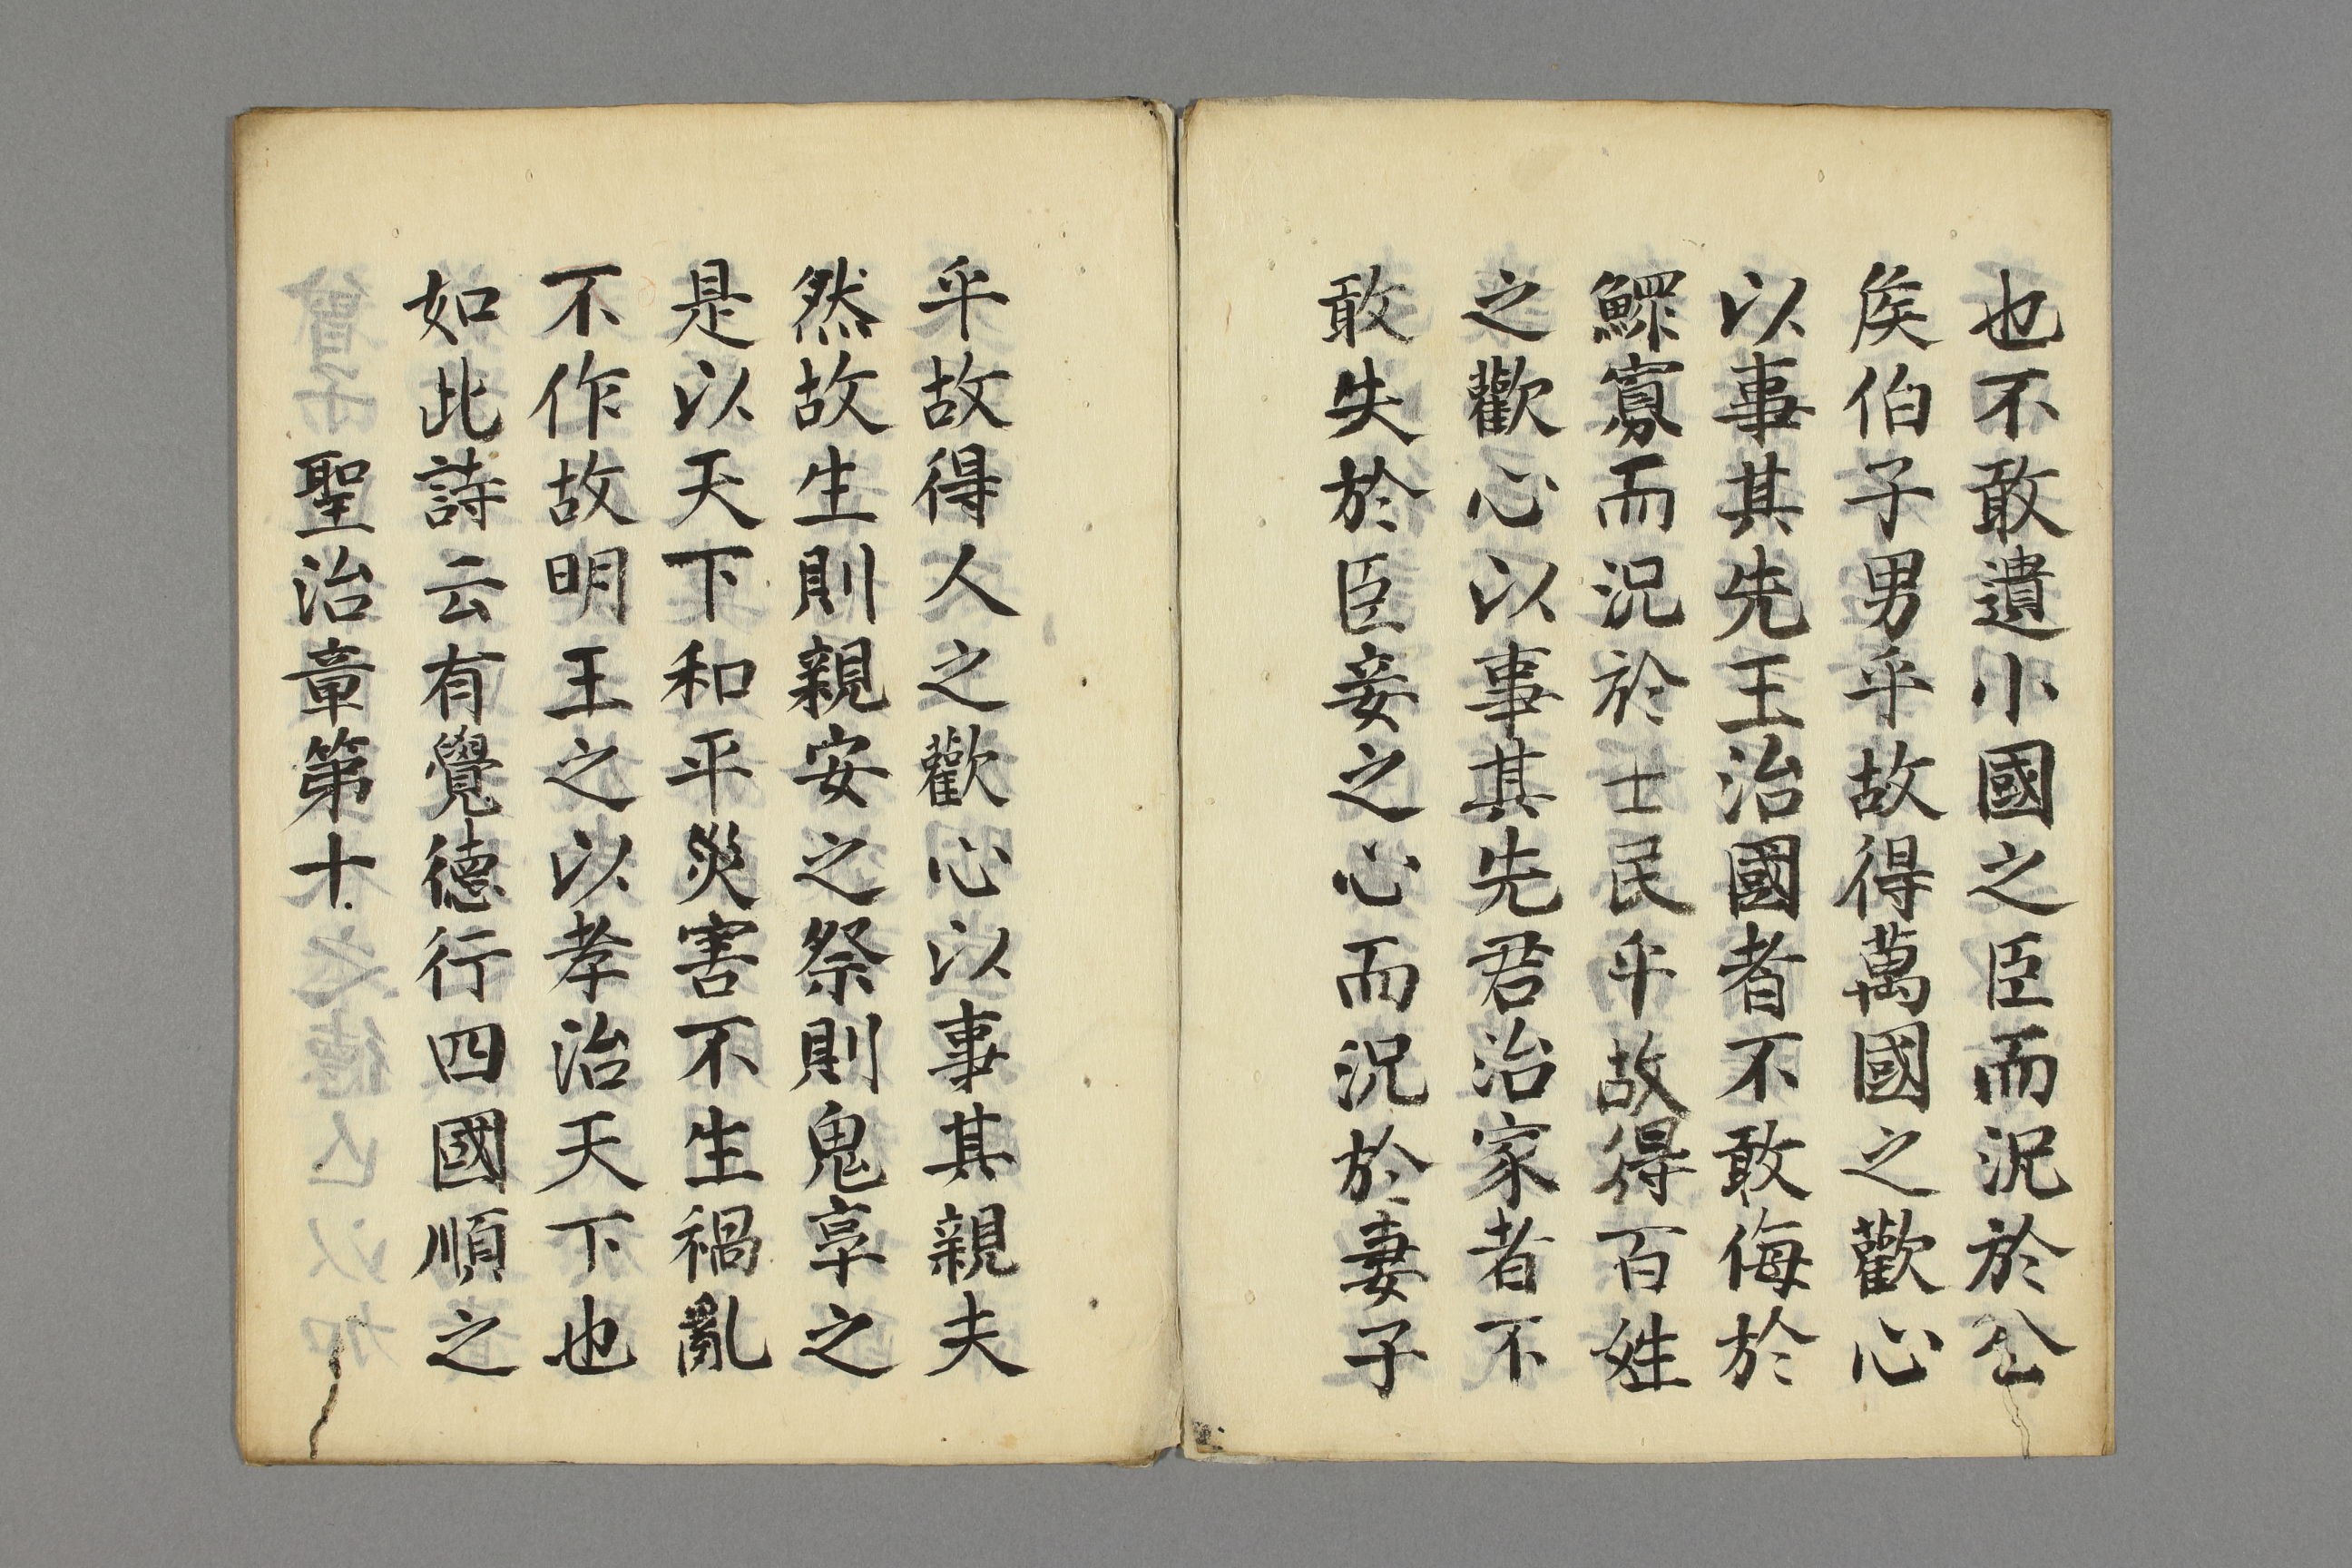 也不敢遺小國之臣而況於公
矦伯子男乎故得萬國之歡心
以事其先王治國者不敢侮於
鰥寡而況於士民乎故得百姓
之歡心以事其先君治家者不
敢失於臣妾之心而況於妻子
乎故得人之歡心以事其親夫
然故生則親安之祭則鬼享之
是以天下和平災害不生禍亂
不作故明王之以孝治天下也
如此詩云有覺德行四國順之
聖治章第十